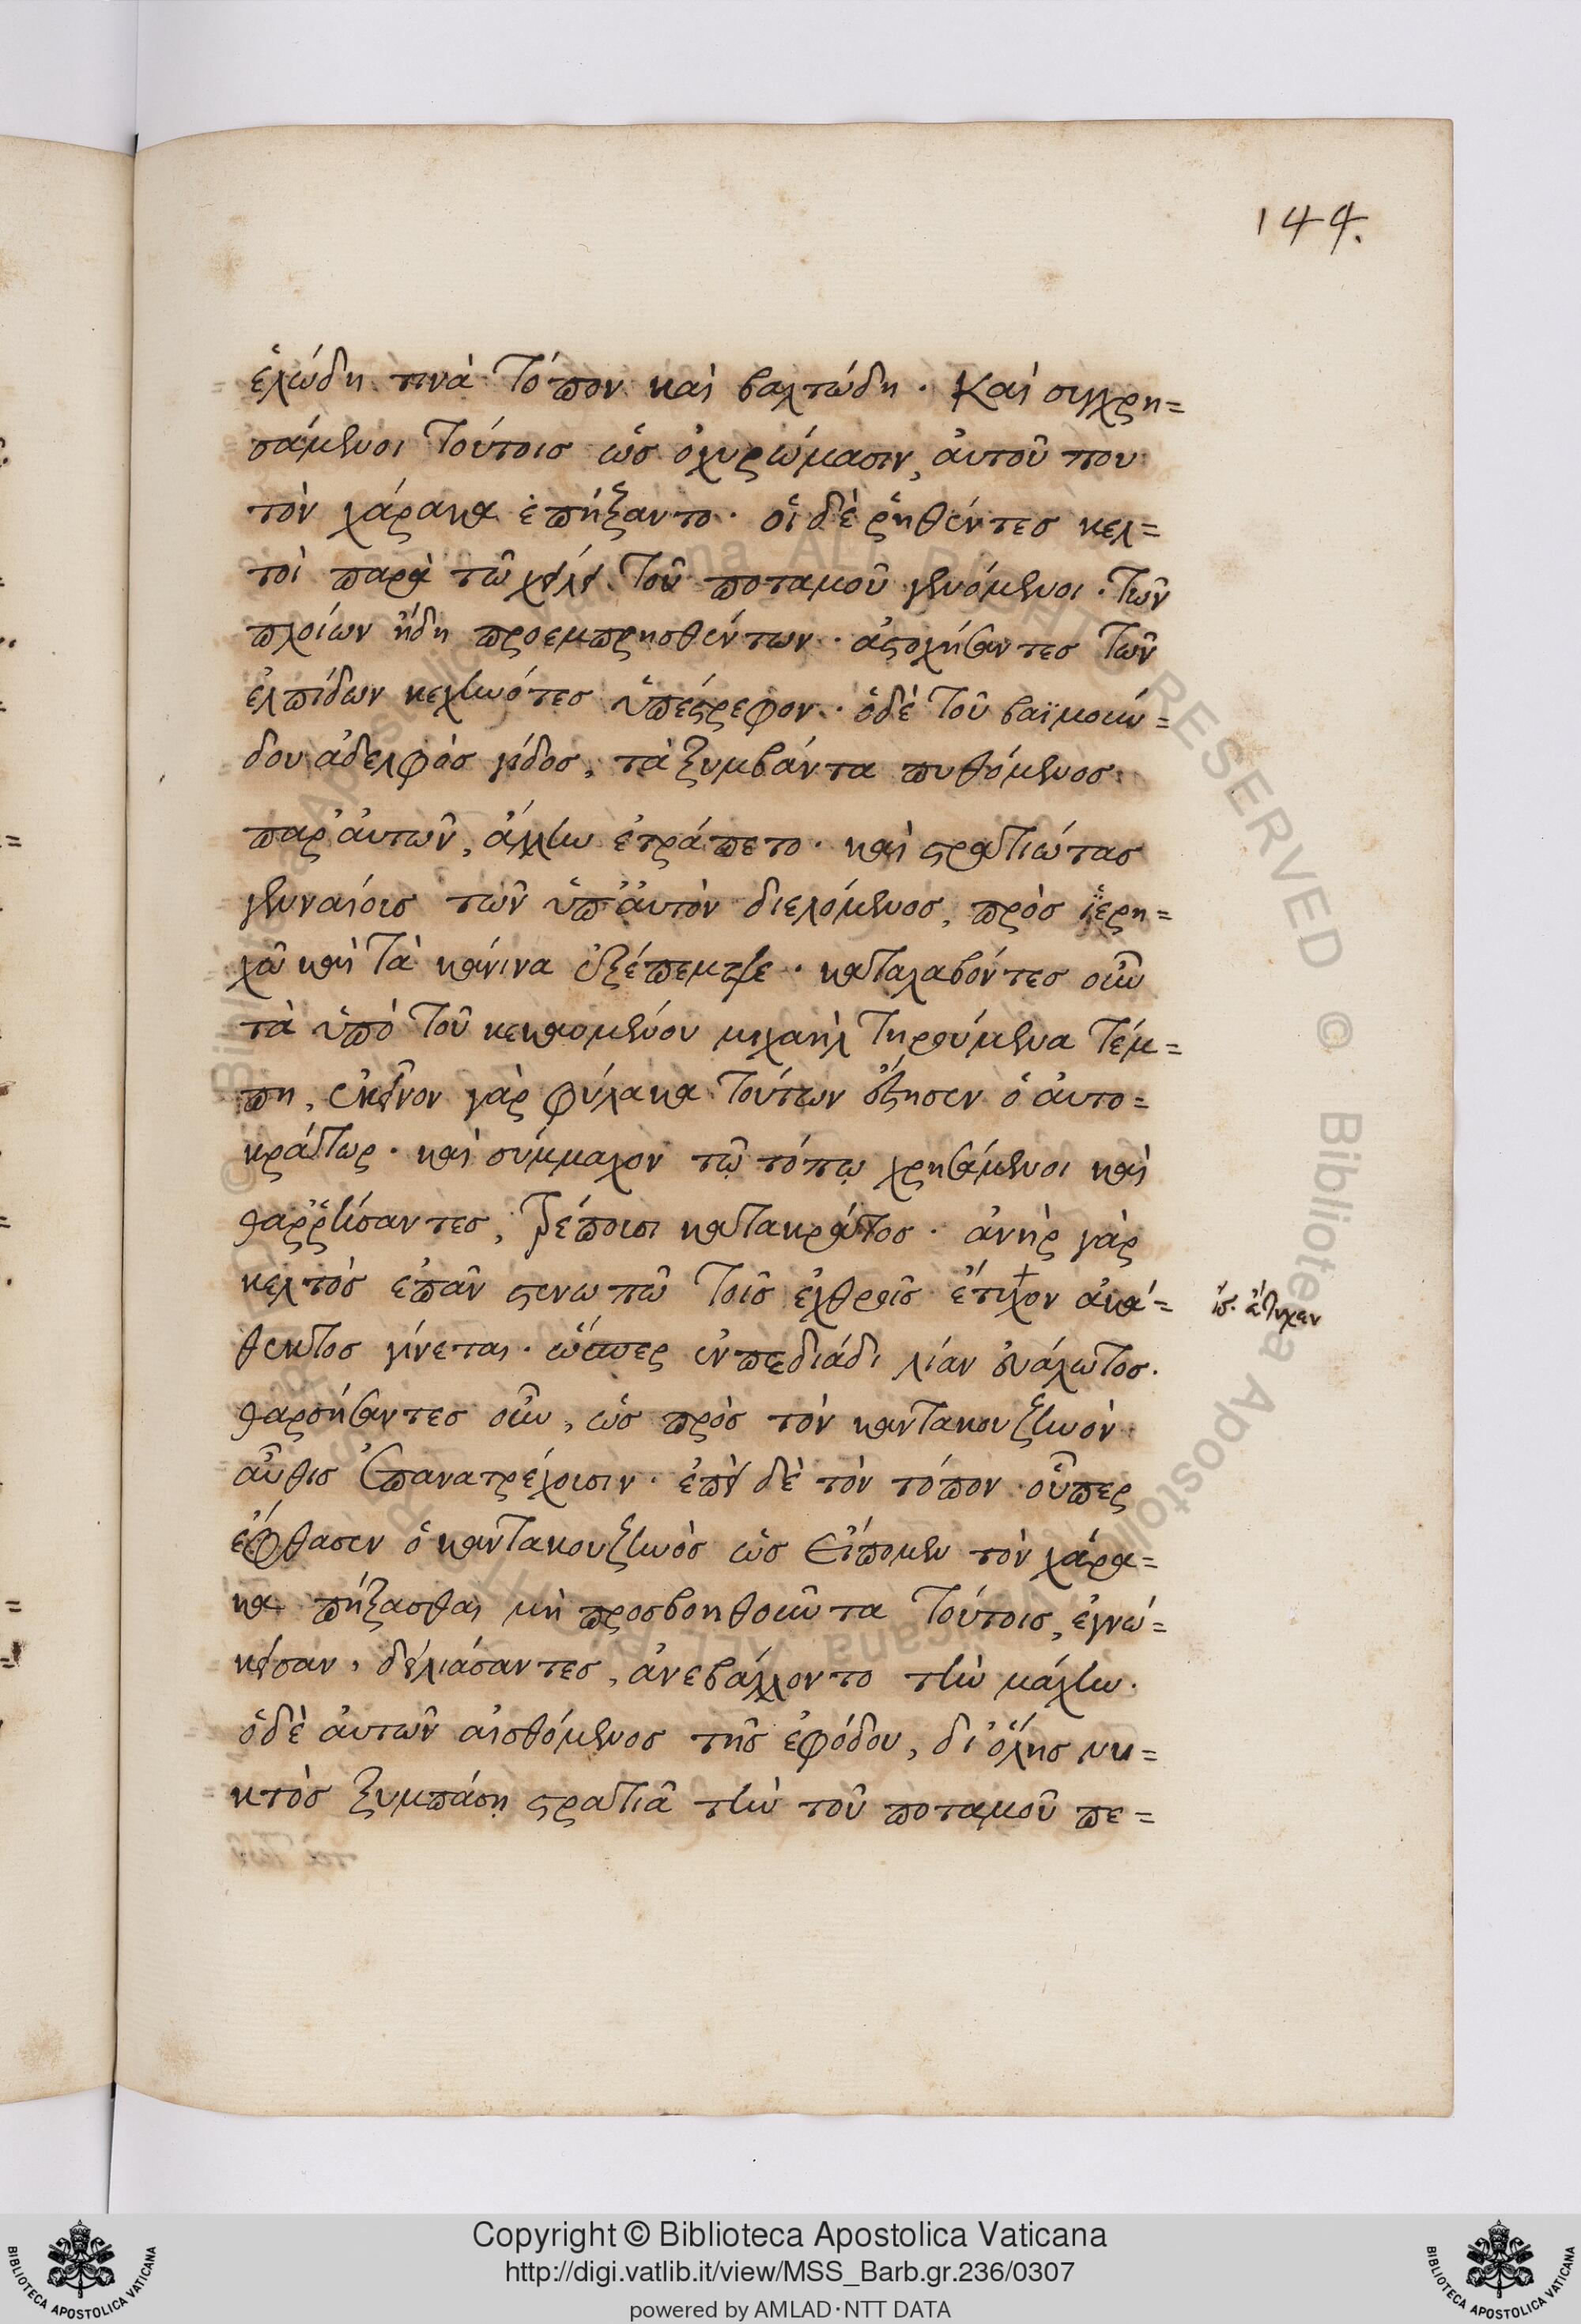 144.
ἑλώδη τινὰ τόπον καὶ βαλτώδη. Καὶ συγχρη=
σάμενοι τούτοις ὡς ὀχυρώμασιν, αὐτοῦ που
τὸν χάρακα ἐπήξαντο. οἱ δὲ ῥηθέντες κελ=
τοὶ παρὰ τῶ χείλει τοῦ ποταμοῦ γενόμενοι. τῶν
πλοίων ἤδη προεμπρησθέντων. ἀστοχήσαντες τῶν
ἐλπίδων κεχηνότες ὑπέστρεφον. ὁ δὲ τοῦ βαϊμούν=
δου ἀδελφὸς γίδος, τὰ ξυμβάντα πυθόμενος
παρ' αὐτῶν, ἄλλην ἐτράπετο. καὶ στρατιώτας
γενναίους τῶν ὑπ' αὐτὸν διελόμενος, πρὸς ἱερη=
χῶ καὶ τὰ κάνινα ἐξέπεμψε. καταλαβόντες οὖν
τὰ ὑπὸ τοῦ κεκαομένου μιχαὴλ τηρούμενα τέμ=
πη, ἐκεῖνον γὰρ φύλακα τούτων ἔστησεν ὁ αὐτο=
κράτωρ. καὶ σύμμαχον τῷ τόπῳ χρησάμενοι καὶ
θαρρήσαντες, τρέπουσι κατακράτος. ἀνὴρ γὰρ
κελτὸς ἐπὰν στενωπῶ τοῖς ἐχθροῖς ἔτυχον ἀκά=
ἴσ. ἔτυχεν
θεκτος γίνεται. ὥσπερ ἐν πεδιάδι λίαν εὐάλωτος.
θαρσήσαντες οὖν, ὡς πρὸς τὸν καντακουζηνὸν
αὖθις ἐπανατρέχουσιν. ἐπεὶ δὲ τὸν τόπον οὗπερ
ἔφθασεν ὁ καντακουζηνὸς ὡς εἴπομεν τὸν χάρα=
κα πήξασθαι μὴ προσβοηθοῦντα τούτοις, ἐγνώ=
κεισαν, δειλιάσαντες, ἀνεβάλλοντο τὴν μάχην.
ὁ δὲ αὐτῶν αἰσθόμενος τῆς ἐφόδου, δι' ὅλης νυ=
κτὸς ξυμπάσῃ στρατιᾶ τὴν τοῦ ποταμοῦ πε=
Copyright © Biblioteca Apostolica Vaticana
http://digi.vatlib.it/view/MSS_Barb.gr.236/0307
powered by AMLAD·NTT DATA